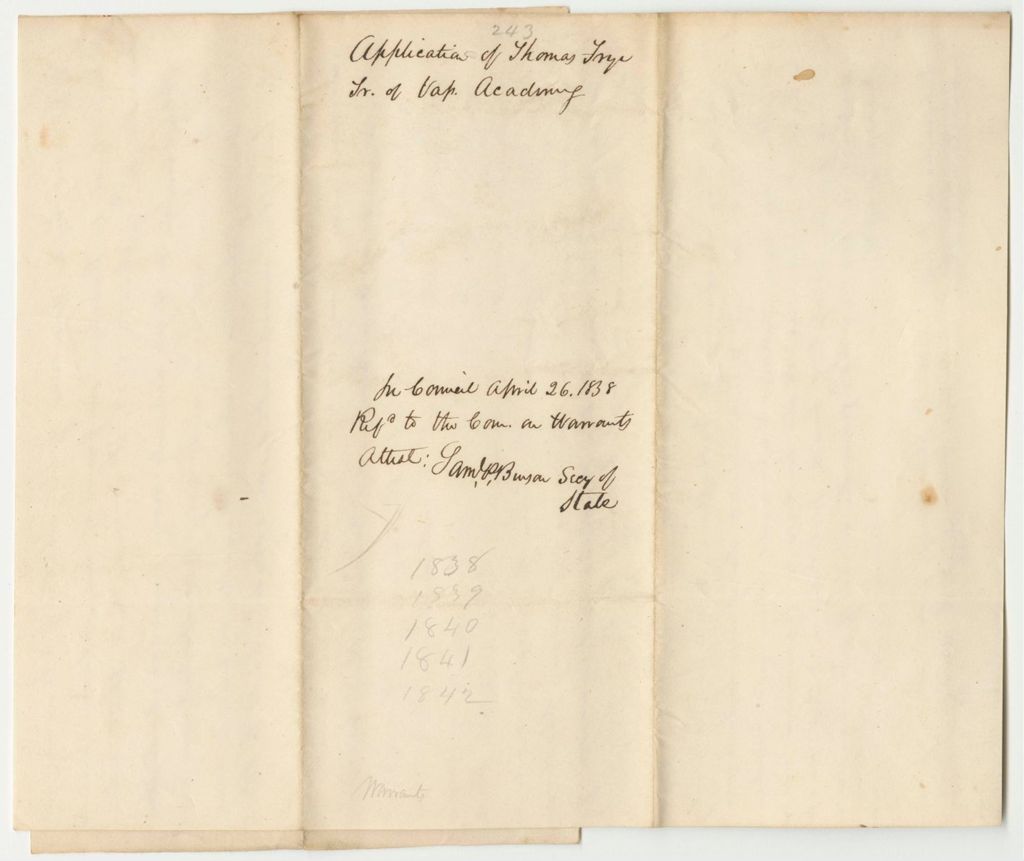 243
Application of Thomas Frye
Tr. of Vas. Academy
In Council April 26. 1838
Refd to the Com. on Warrants
Attest: Saml P. Benson Secy of
State
1838
1839
1840
1841
1842
Warrants